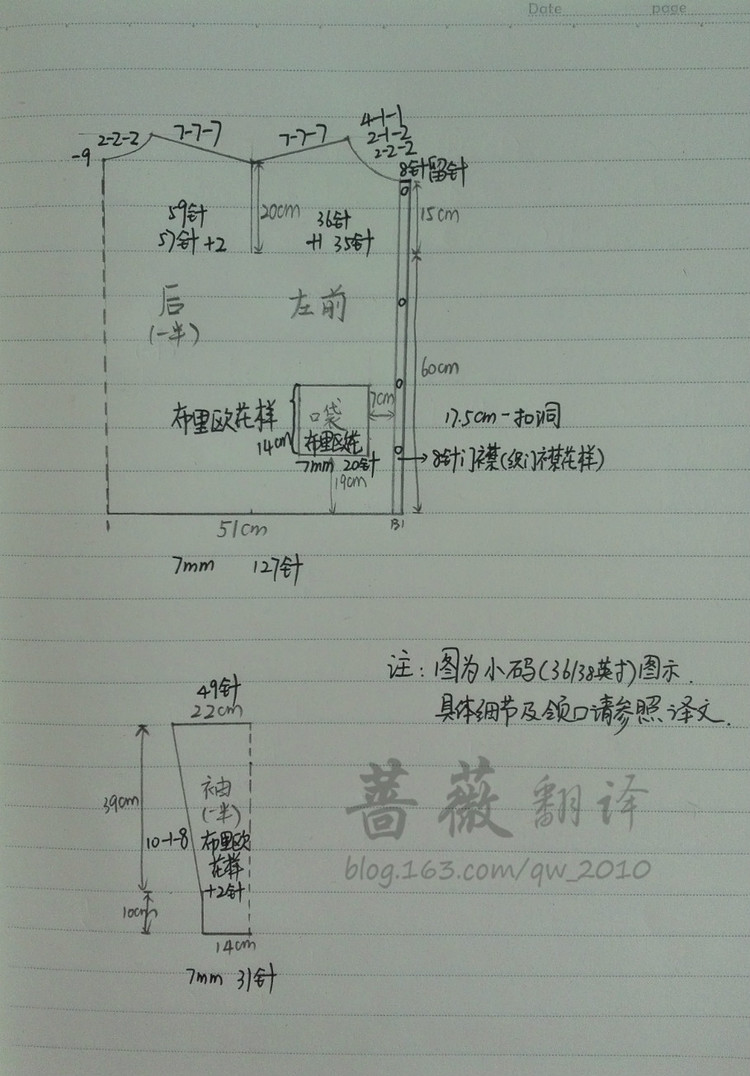 Date page
4-1-1
2-2-2 7-7-7 7-7-7 2-1-2
-9 2-2-2
8针留针
59针 20cm 36针 15cm
57针+2 +1 35针
后 左前
(一半)
60cm
布里欧花样 口袋 7cm 17.5cm一扣洞
14cm 布里欧花
7mm 20针 8针门襟(织门襟花样)
19cm
51cm B1
7mm 127针
注:图为小码(36/38英寸)图示.
具体细节及领口请参照译文.
49针
22cm
39cm 袖
(一半)
10-1-8 布里欧
花样
+2针
10cm
14cm
7mm 31针
蔷薇翻译
blog.163.com/qw_2010